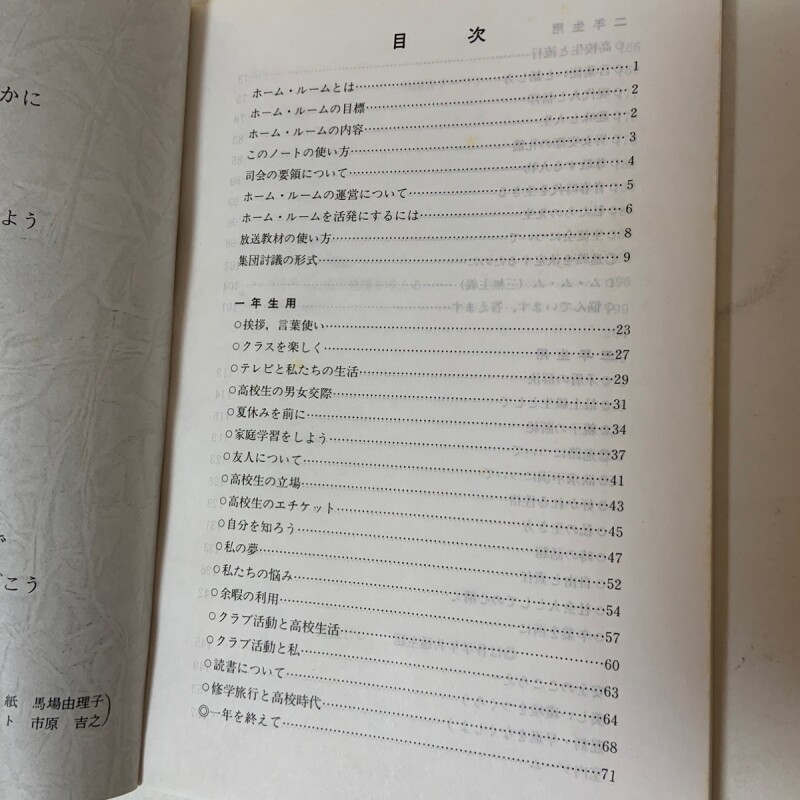 かに
よう
こう
紙 馬場由理子
ト 市原 吉之
目 次
ホーム・ルームとは……1
ホーム・ルームの目標……2
ホーム・ルームの内容……2
このノートの使い方……3
司会の要領について……4
ホーム・ルームの運営について……5
ホーム・ルームを活発にするには……6
放送教材の使い方……8
集団討議の形式……9
一年生用
○挨拶，言葉使い……23
○クラスを楽しく……27
○テレビと私たちの生活……29
○高校生の男女交際……31
○夏休みを前に……34
○家庭学習をしよう……37
○友人について……41
○高校生の立場……43
○高校生のエチケット……45
○自分を知ろう……47
○私の夢……52
○私たちの悩み……54
○余暇の利用……57
○クラブ活動と高校生活……60
○クラブ活動と私……63
○読書について……64
○修学旅行と高校時代……68
◎一年を終えて……71